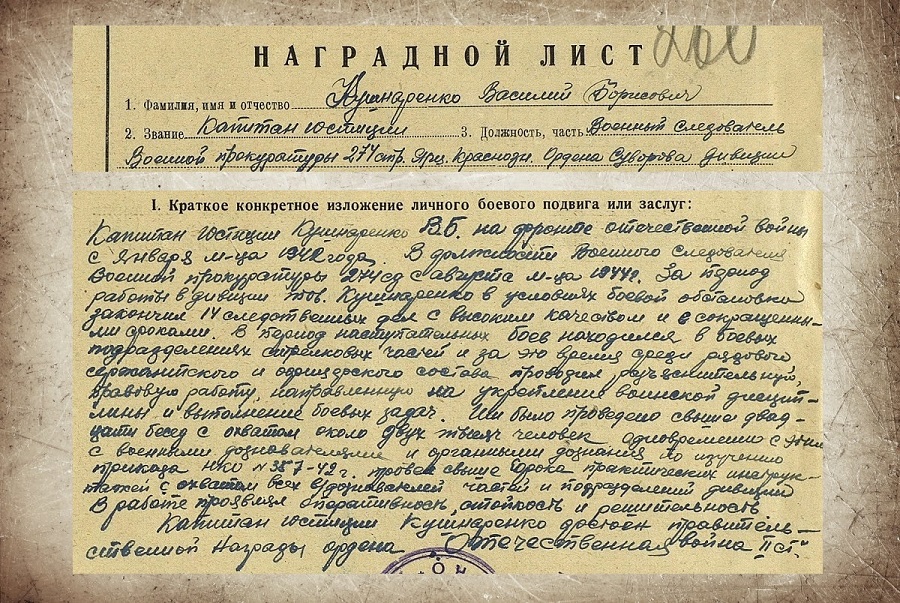 НАГРАДНОЙ ЛИСТ
1. Фамилия, имя и отчество Кушнаренко Василий Борисович
2. Звание Капитан юстиции 3. Должность, часть Военный следователь
Военной прокуратуры 274 стр. Ярц. Краснозн. Ордена Суворова дивизии
I. Краткое конкретное изложение личного боевого подвига или заслуг:
Капитан юстиции Кушнаренко В.Б. на фронте отечественной войны
с января м-ца 1942 года. В должности Военного Следователя
Военной прокуратуры 274 сд с августа м-ца 1944 г. За период
работы в дивизии тов. Кушнаренко в условиях боевой обстановки
закончил 14 следственных дел с высоким качеством и в сокращенны-
ми сроками. В период наступательных боев находился в боевых
подразделениях стрелковых частей и за это время среди рядового
сержантского и офицерского состава проводил разъяснительную,
правовую работу, направленную на укрепление воинской дисцип-
лины и выполнение боевых задач. Им было проведено свыше двад-
цати бесед с охватом около двух тысяч человек одновременно с этим
с военными дознавателями и органами дознания по изучению
приказа НКО № 357-42 г. провел свыше сорока практических инструк-
тажей с охватом всех дознавателей частей и подразделений дивизии
В работе проявил оперативность, стойкость и решительность.
Капитан юстиции Кушнаренко достоен правитель-
ственной Награды ордена „Отечественная война II ст."